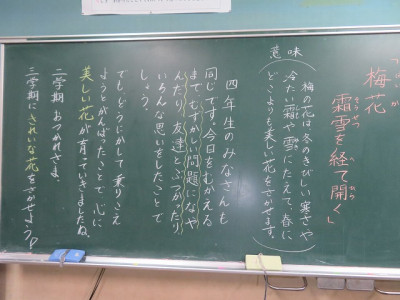 「梅花
霜雪を経て開く」
意味
梅の花は冬のきびしい寒さや
冷たい霜や雪にたえて、春に
どこよりも美しい花をさかせます。
四年生のみなさんも
同じです。今日をむかえる
まで、むずかしい問題になや
んだり、友達とぶつかったり
いろんな思いをしたことで
しょう。
でも、どうにかして乗りこえ
ようとがんばったことで、心に
美しい花が育っていきましたね。
二学期 おつかれさま。
三学期にきれいな花をさかせよう♪